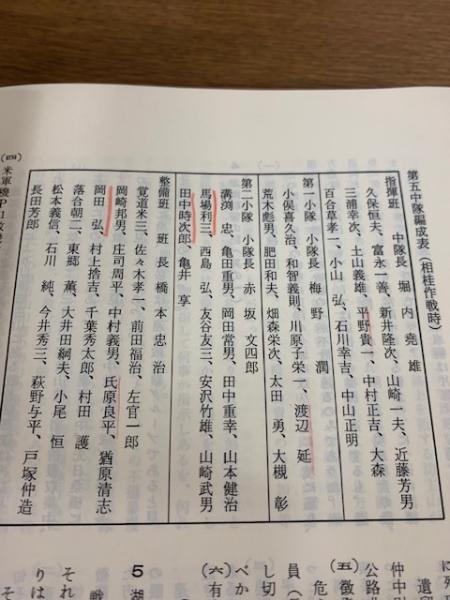 第五中隊編成表（相桂作戦時）
指揮班　中隊長　堀内堯雄
久保恒夫、富永一善、新井隆次、山崎一夫、近藤芳男
三浦幸次、土山義雄、平野貴一、中村正吉、大森
百合草孝一、小山弘、石川幸吉、中山正明
第一小隊　小隊長　梅野潤
小俣喜久治、和智義則、川原子栄一、渡辺延
荒木彪男、肥田和夫、畑森栄次、太田勇、大槻彰
第二小隊　小隊長　赤坂文四郎
溝渕忠、亀田重男、岡田常男、田中重幸、山本健治
馬場利三、西島弘、友谷友三、安沢竹雄、山崎武男
田中時次郎、亀井享
整備班　班長　橋本忠治
覚道米三、佐々木孝一、前田福治、左官一郎
岡崎邦男、庄司周平、中村義男、氏原良平、猶原清志
岡田弘、村上捨吉、千葉秀太郎、村田護
落合朝二、東郷薫、大井田綱夫、小尾恒
松本義信、石川純、今井秀三、萩野与平、戸塚仲造
長田芳郎
米軍機P
遺留
仲中
公路
危
㈤徴
員（
し切
べか
㈥有
5　湖
戦
それ
りは